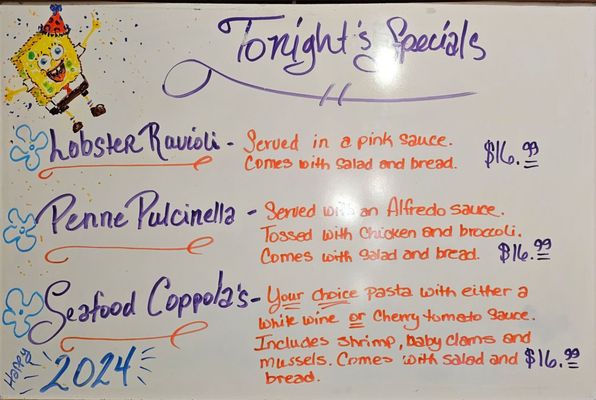 Tonight's Specials
Lobster Ravioli - Served in a pink sauce.
Comes with salad and bread. $16.99
Penne Pulcinella - Served with an Alfredo sauce.
Tossed with chicken and broccoli.
Comes with salad and bread. $16.99
Seafood Coppola's - Your choice pasta with either a
white wine or cherry tomato sauce.
Includes shrimp, baby clams and
mussels. Comes with salad and $16.99
bread.
Happy
2024